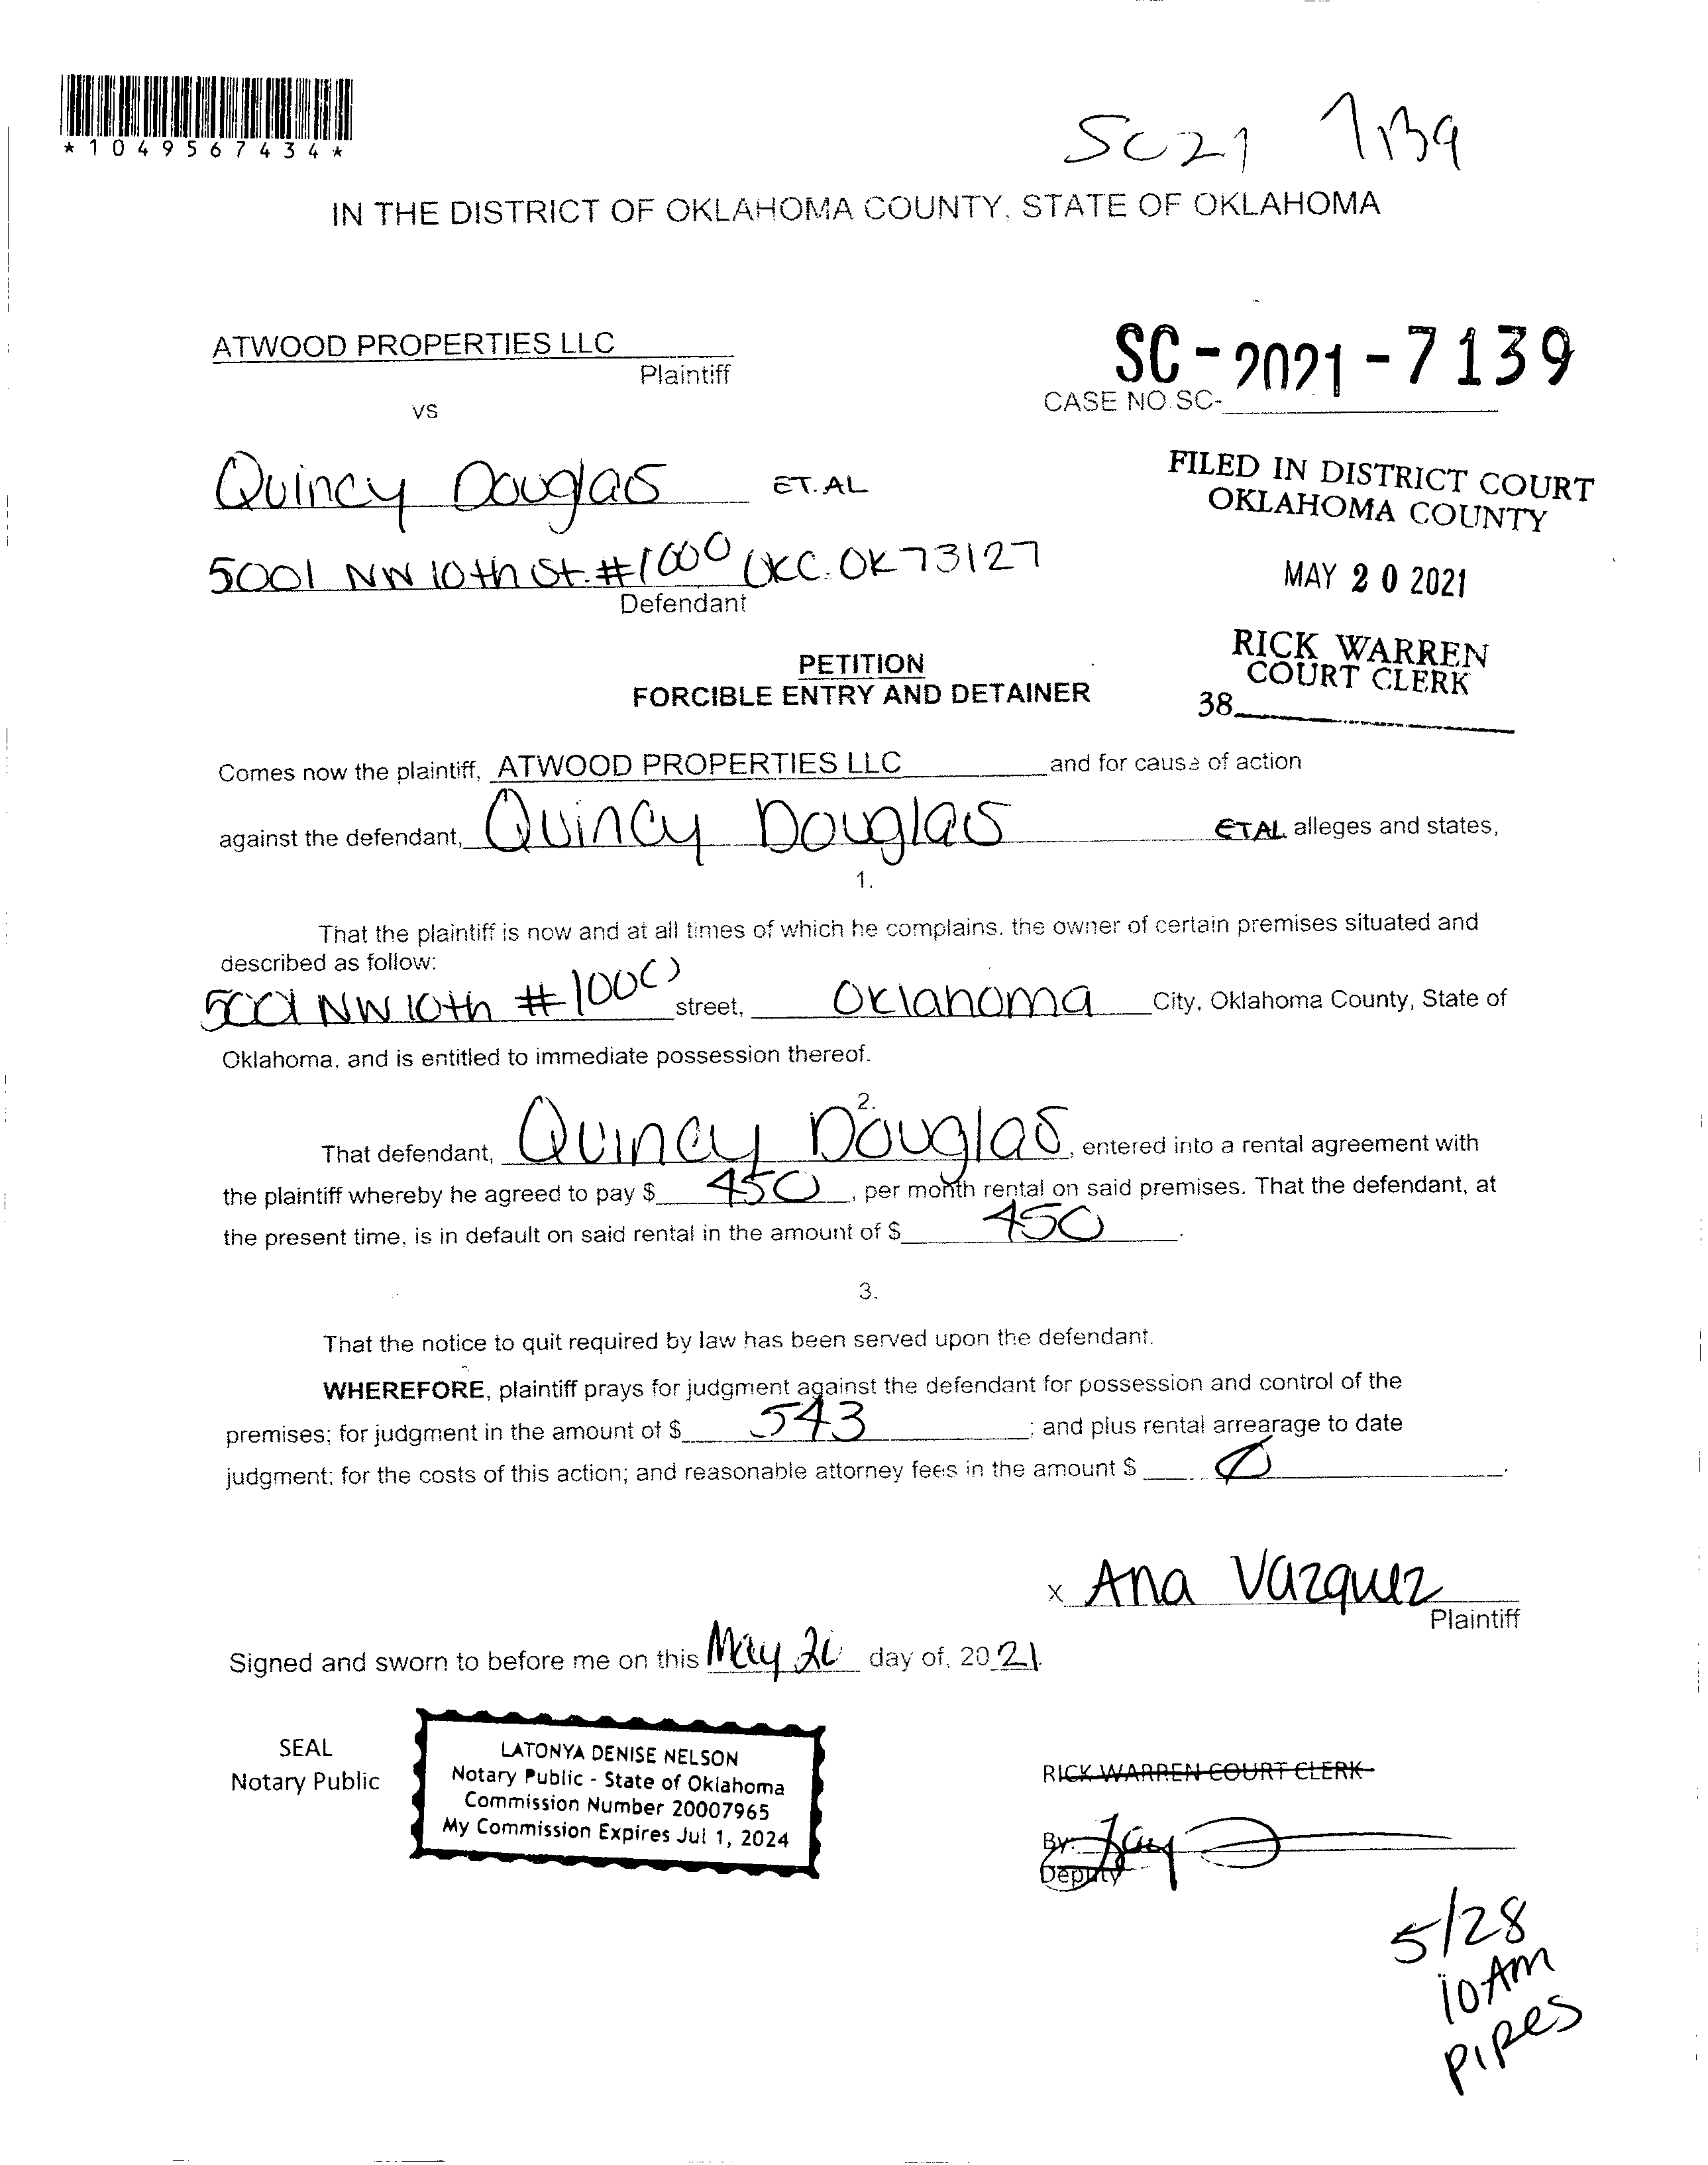 *1049567434*
SC21 7139
IN THE DISTRICT OF OKLAHOMA COUNTY, STATE OF OKLAHOMA
ATWOOD PROPERTIES LLC
Plaintiff
vs
SC-2021-7139
CASE NO.SC-
Quincy Douglas ET.AL
5001 NW 10th St. #1000 OKC. OK 73127
Defendant
FILED IN DISTRICT COURT
OKLAHOMA COUNTY
MAY 20 2021
RICK WARREN
COURT CLERK
38
PETITION
FORCIBLE ENTRY AND DETAINER
Comes now the plaintiff, ATWOOD PROPERTIES LLC and for cause of action
against the defendant, Quincy Douglas ETAL alleges and states,
1.
That the plaintiff is now and at all times of which he complains, the owner of certain premises situated and
described as follow:
5001 NW 10th #1000 street, Oklahoma City, Oklahoma County, State of
Oklahoma, and is entitled to immediate possession thereof.
2.
That defendant, Quincy Douglas, entered into a rental agreement with
the plaintiff whereby he agreed to pay $ 450, per month rental on said premises. That the defendant, at
the present time, is in default on said rental in the amount of $ 450.
3.
That the notice to quit required by law has been served upon the defendant.
WHEREFORE, plaintiff prays for judgment against the defendant for possession and control of the
premises; for judgment in the amount of $ 543; and plus rental arrearage to date
judgment; for the costs of this action; and reasonable attorney fees in the amount $ 0.
x Ana Vazquez
Plaintiff
Signed and sworn to before me on this May 20 day of, 2021.
SEAL
Notary Public
LATONYA DENISE NELSON
Notary Public - State of Oklahoma
Commission Number 20007965
My Commission Expires Jul 1, 2024
RICK WARREN COURT CLERK
By:
Deputy
5/28
10AM
PIPES